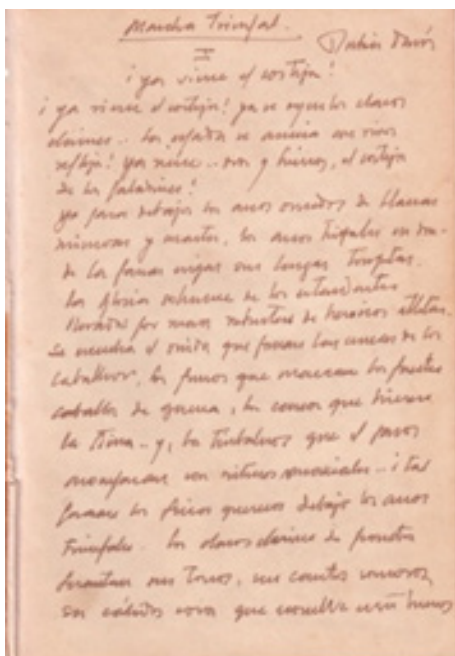 Marcha Triunfal.
Rubén Darío
I
¡ya viene el cortejo!
¡ya viene el cortejo! ya se oyen los claros
clarines.. La espada se anuncia con vivos
reflejo! ya viene.. oro y hierro, el cortejo
de los paladines!
ya pasa debajo los arcos ornados de blancas
minervas y martes, los arcos triunfales en don-
de las famas erigen sus largas trompetas.
La gloria solemne de los estandartes
llevados por manos robustas de heroicos atletas.
Se escucha el ruido que forman las armas de los
caballeros, los frenos que mascan los fuertes
caballos de guerra, los cascos que hieren
la tierra.. y, los timbaleros que el paso
acompasan con ritmos marciales.. ¡tal
pasan los fieros guerreros debajo los arcos
triunfales. Los claros clarines de pronto
levantan sus sones, su canto sonoro,
su cálido coro que envuelve